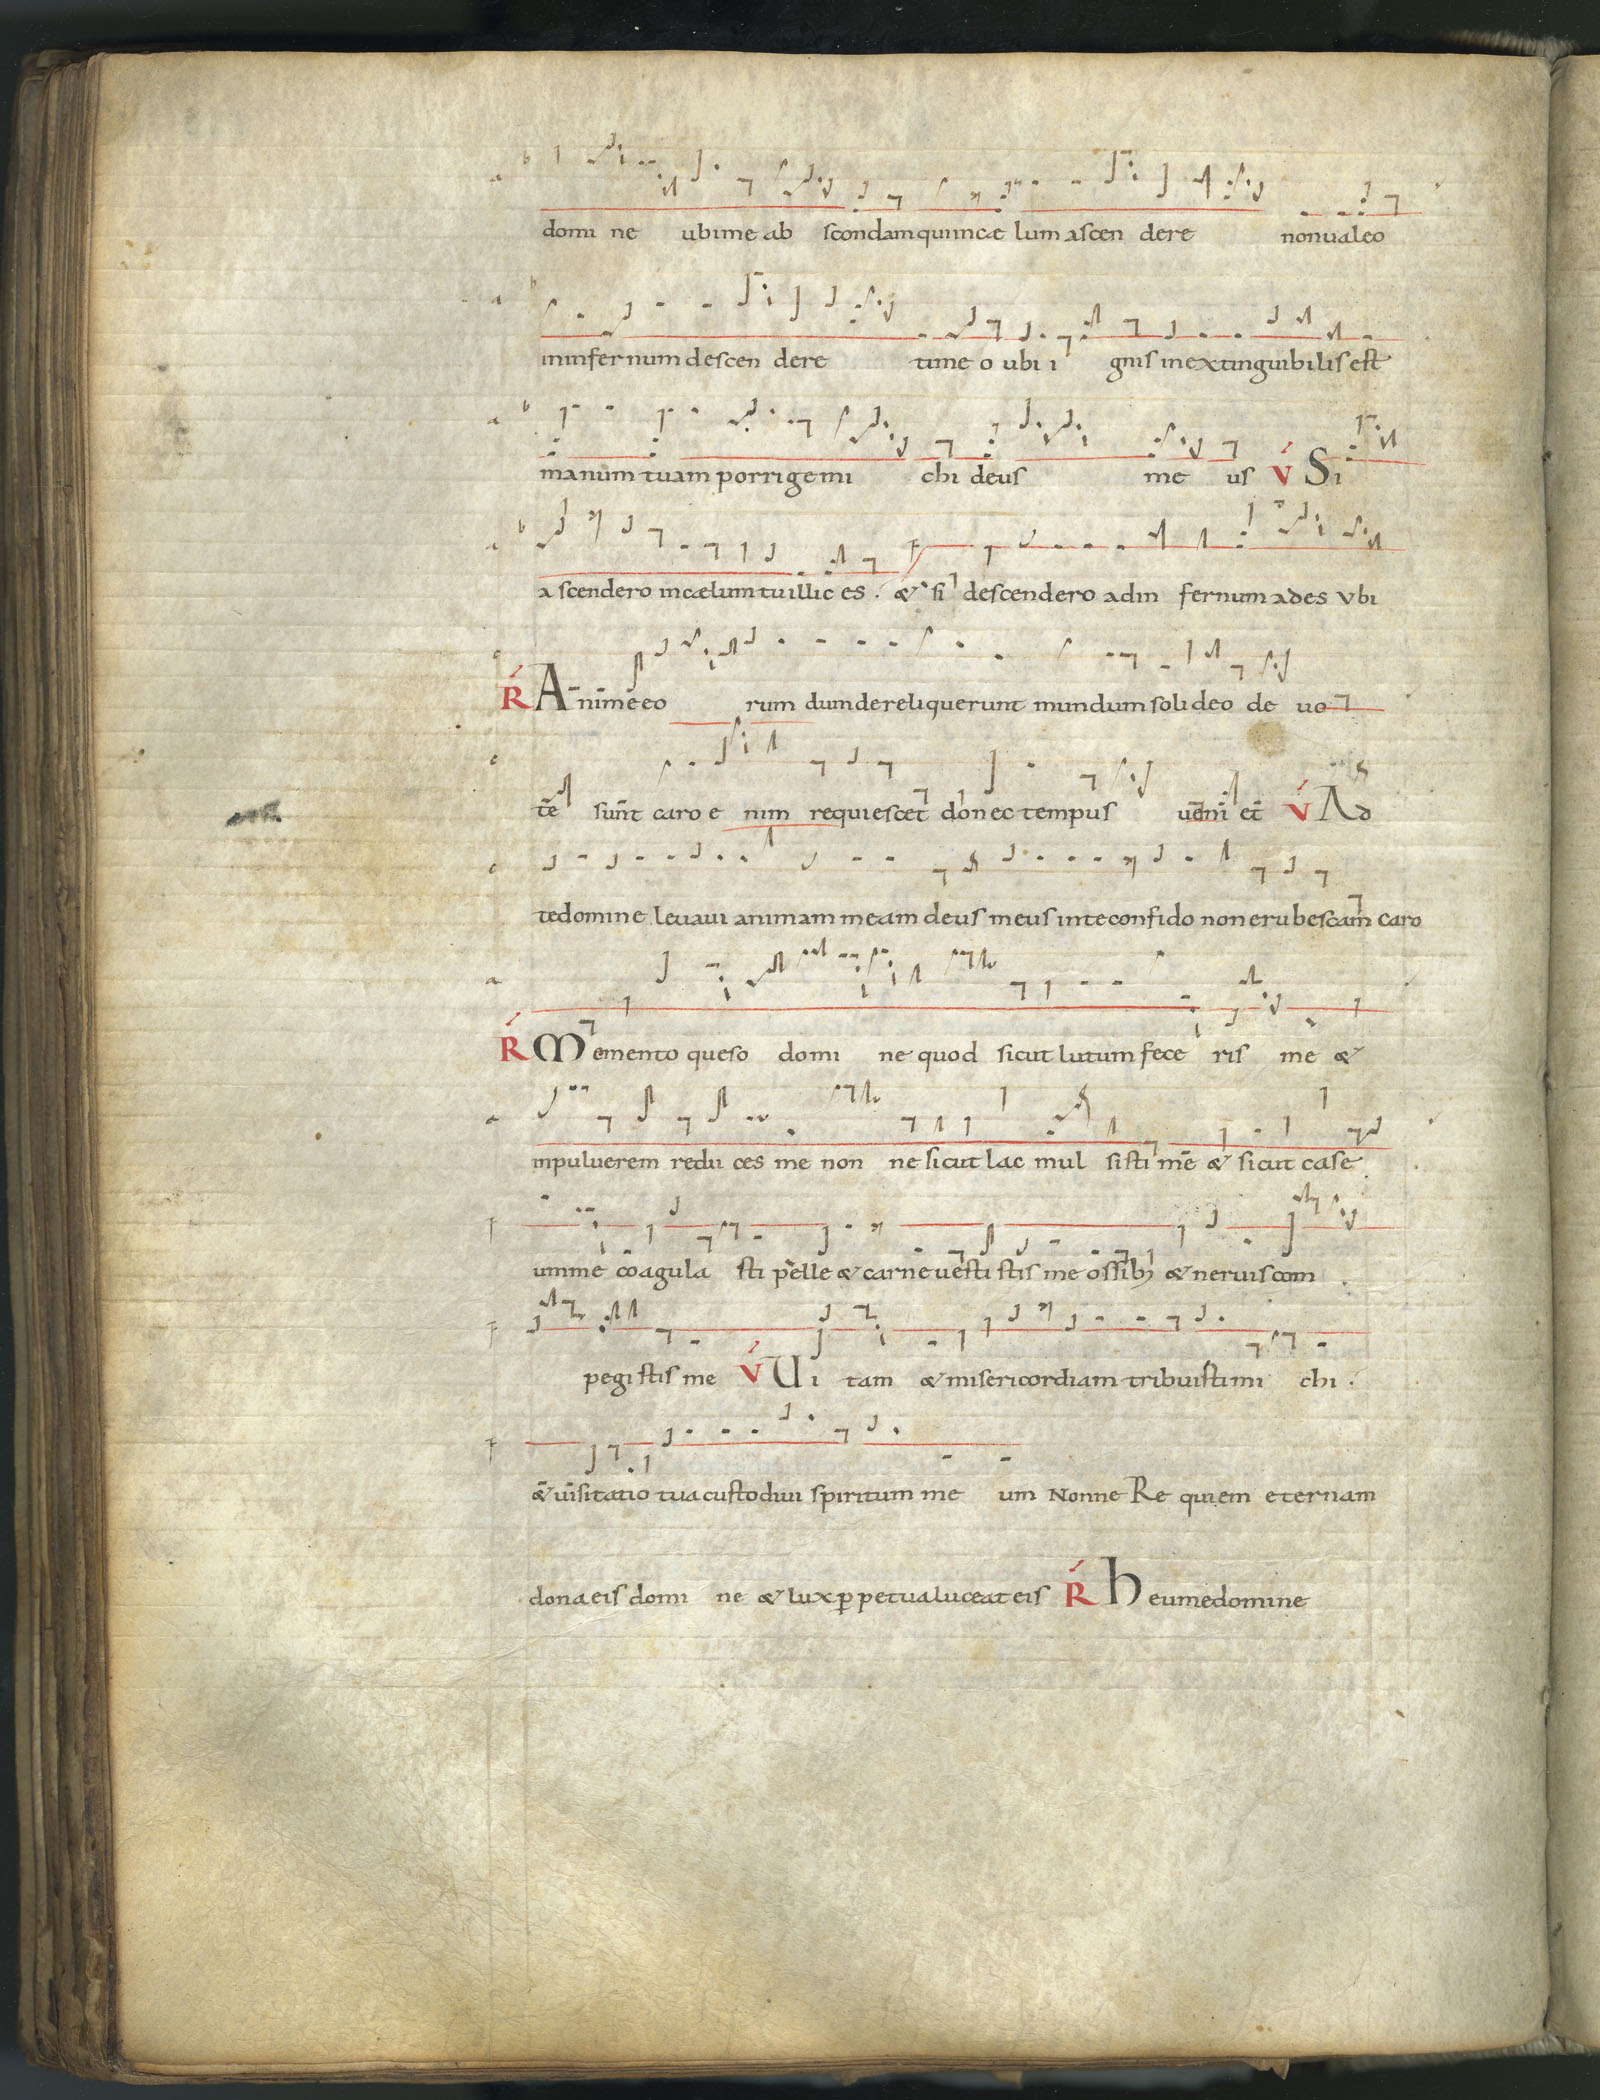 domi ne ubime ab scondam quiincæ lum ascen dere nonualeo
ininfernum descen dere time o ubi i gnis inextinguibilis est
manum tuam porrige mi chi deus me us V Si
ascendero incælum tu illic es . & si descendero adin fernum ades Vbi
R Animeeo rum dum dereliquerunt mundum soli deo de uo
te sunt caro e nim requiescet donec tempus ueni et V Ad
te domine leuaui animam meam deus meus inte confido non erubescam caro
R Memento queso domi ne quod sicut lutum fece ris me &
inpuluerem redu ces me non ne sicut lac mul sisti me & sicut case
umme coagula sti pelle & carne uesti stis me ossib; & neruis com
pegi stis me V Vi tam & misericordiam tribuisti mi chi .
& uisitatio tua custodiui spiritum me um Nonne Re quiem eternam
dona eis domi ne & lux ppetua luceat eis R Heume domine